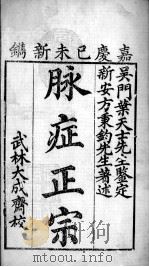 嘉慶己未新鐫
吳門葉天士先生鑒定
新安方秉鈞先生著述
脉症正宗
武林大成齋校
mtoou.info mtoou.info